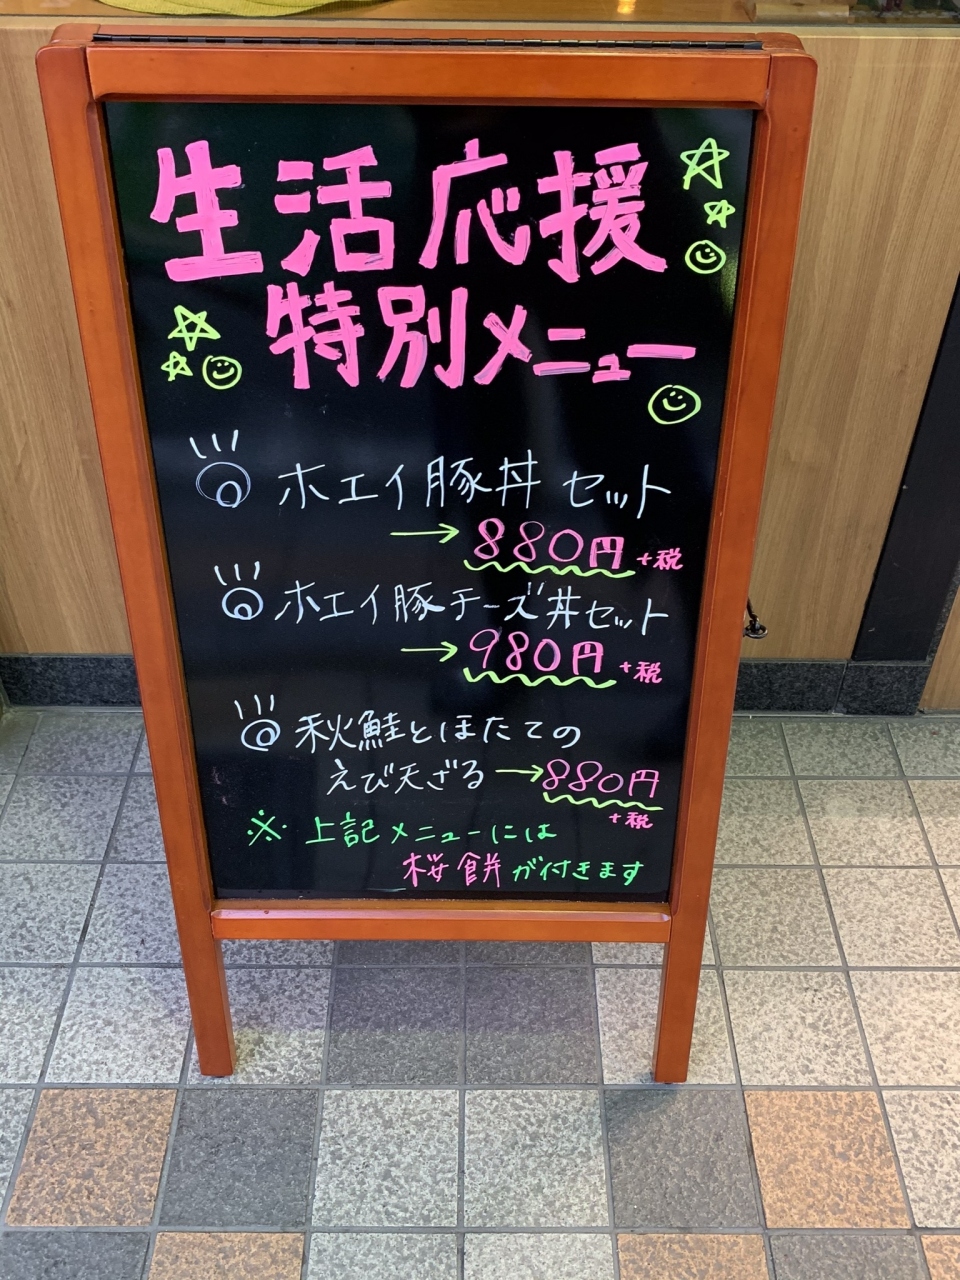 生活応援
特別メニュー
ホエイ豚丼セット
→880円+税
ホエイ豚チーズ丼セット
→980円+税
秋鮭とほたての
えび天ざる→880円
+税
※上記メニューには
桜餅が付きます